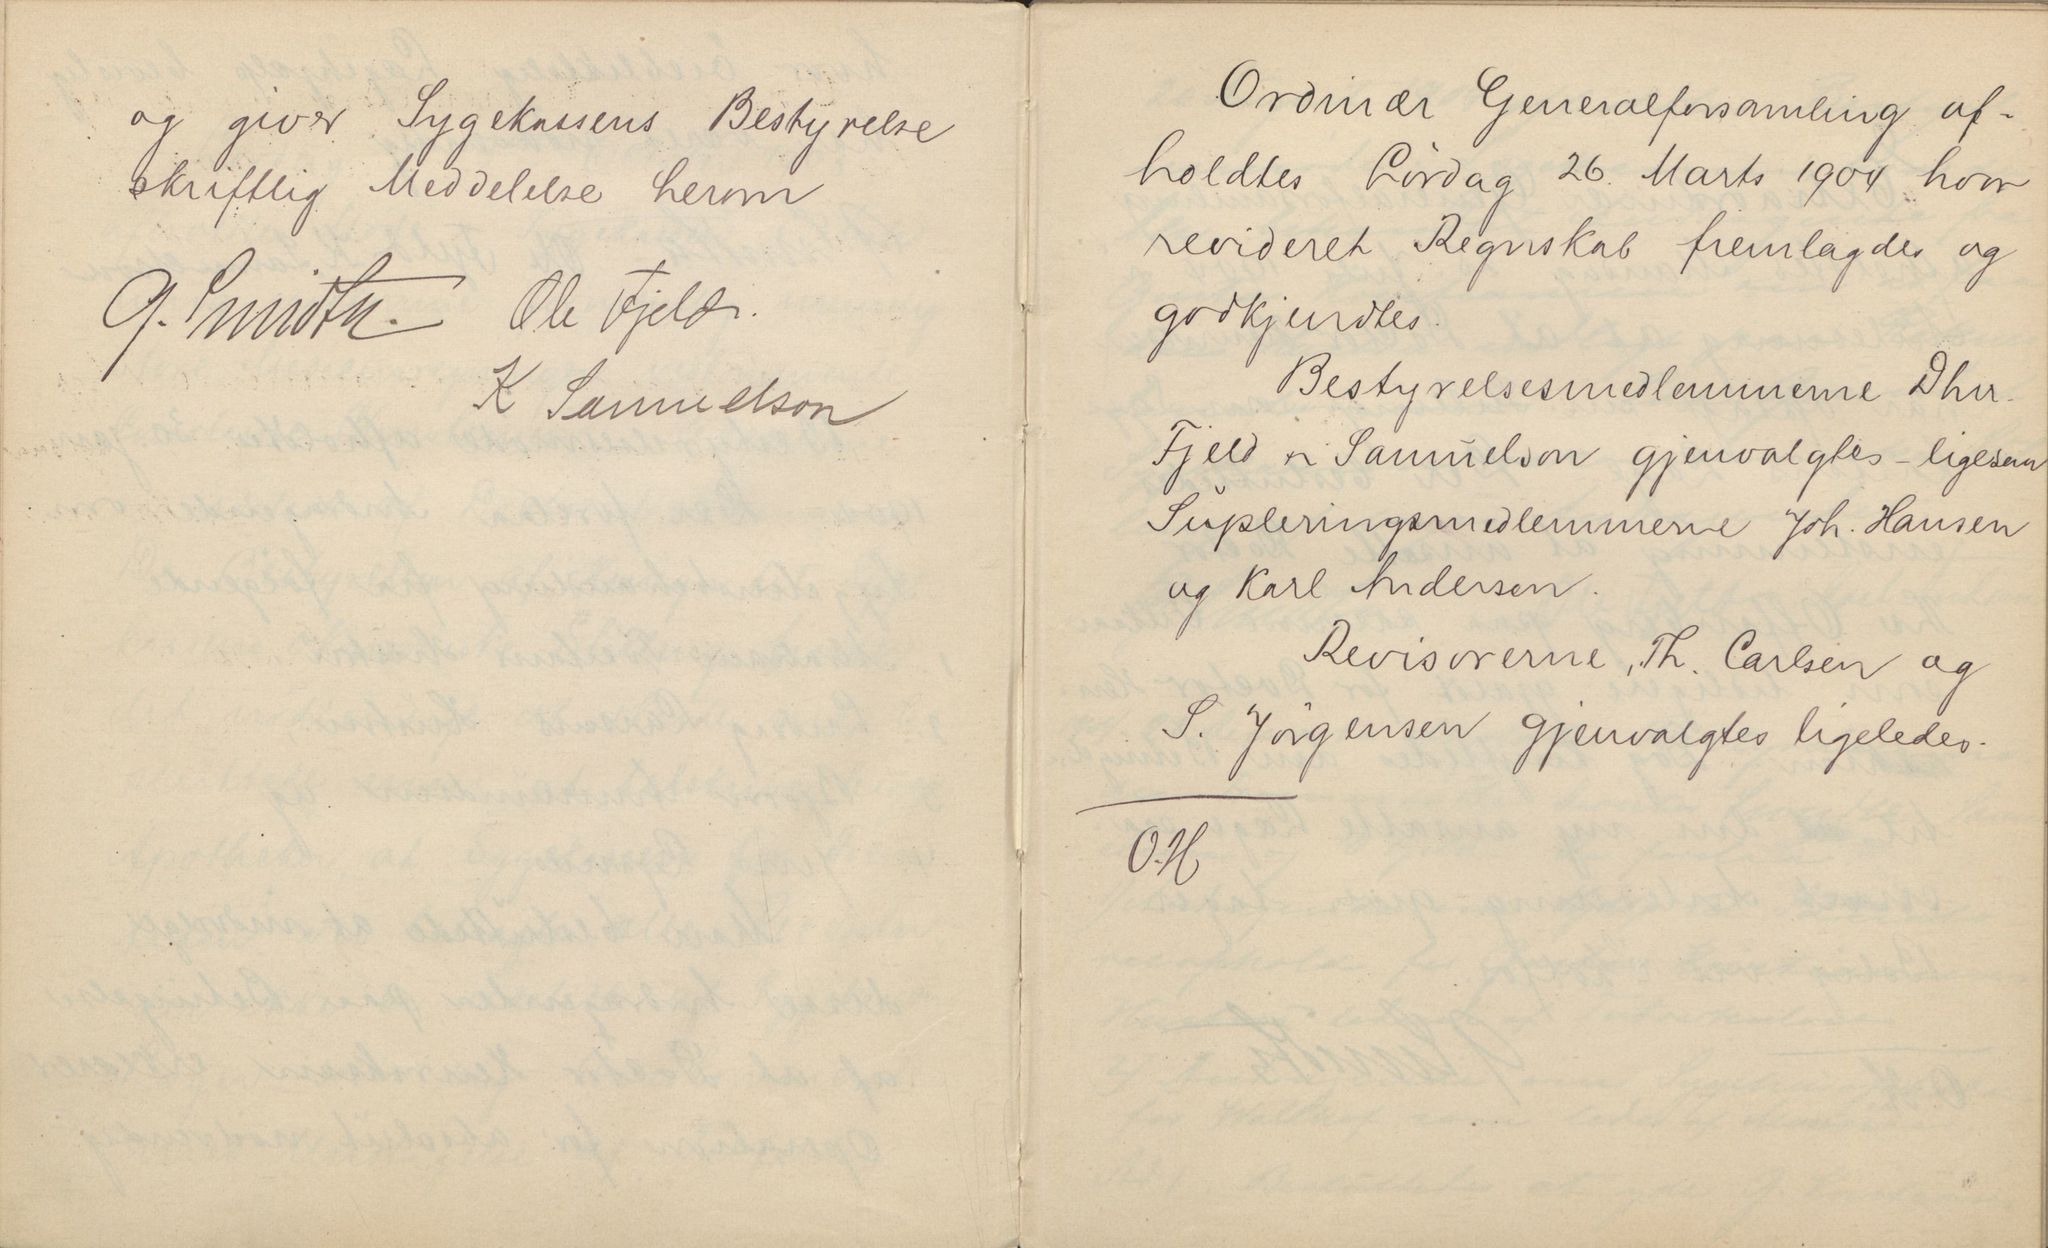 og giver Sygekassens Bestyrelse
skriftlig Meddelelse herom
G. Smidth. Ole Fjeld.
K Samuelson
Ordinær Generalforsamling af-
holdtes Lördag 26. Marts 1904 hvor
revideret Regnskab fremlagdes og
godkjendtes.
Bestyrelsesmedlemmerne Dhrr.
Fjeld & Samuelson gjenvalgtes - ligesaa
Supleringsmedlemmerne Joh. Hansen
og Karl Andersen.
Revisorerne, Th. Carlsen og
S. Jörgensen gjenvalgtes ligeledes.
O.H